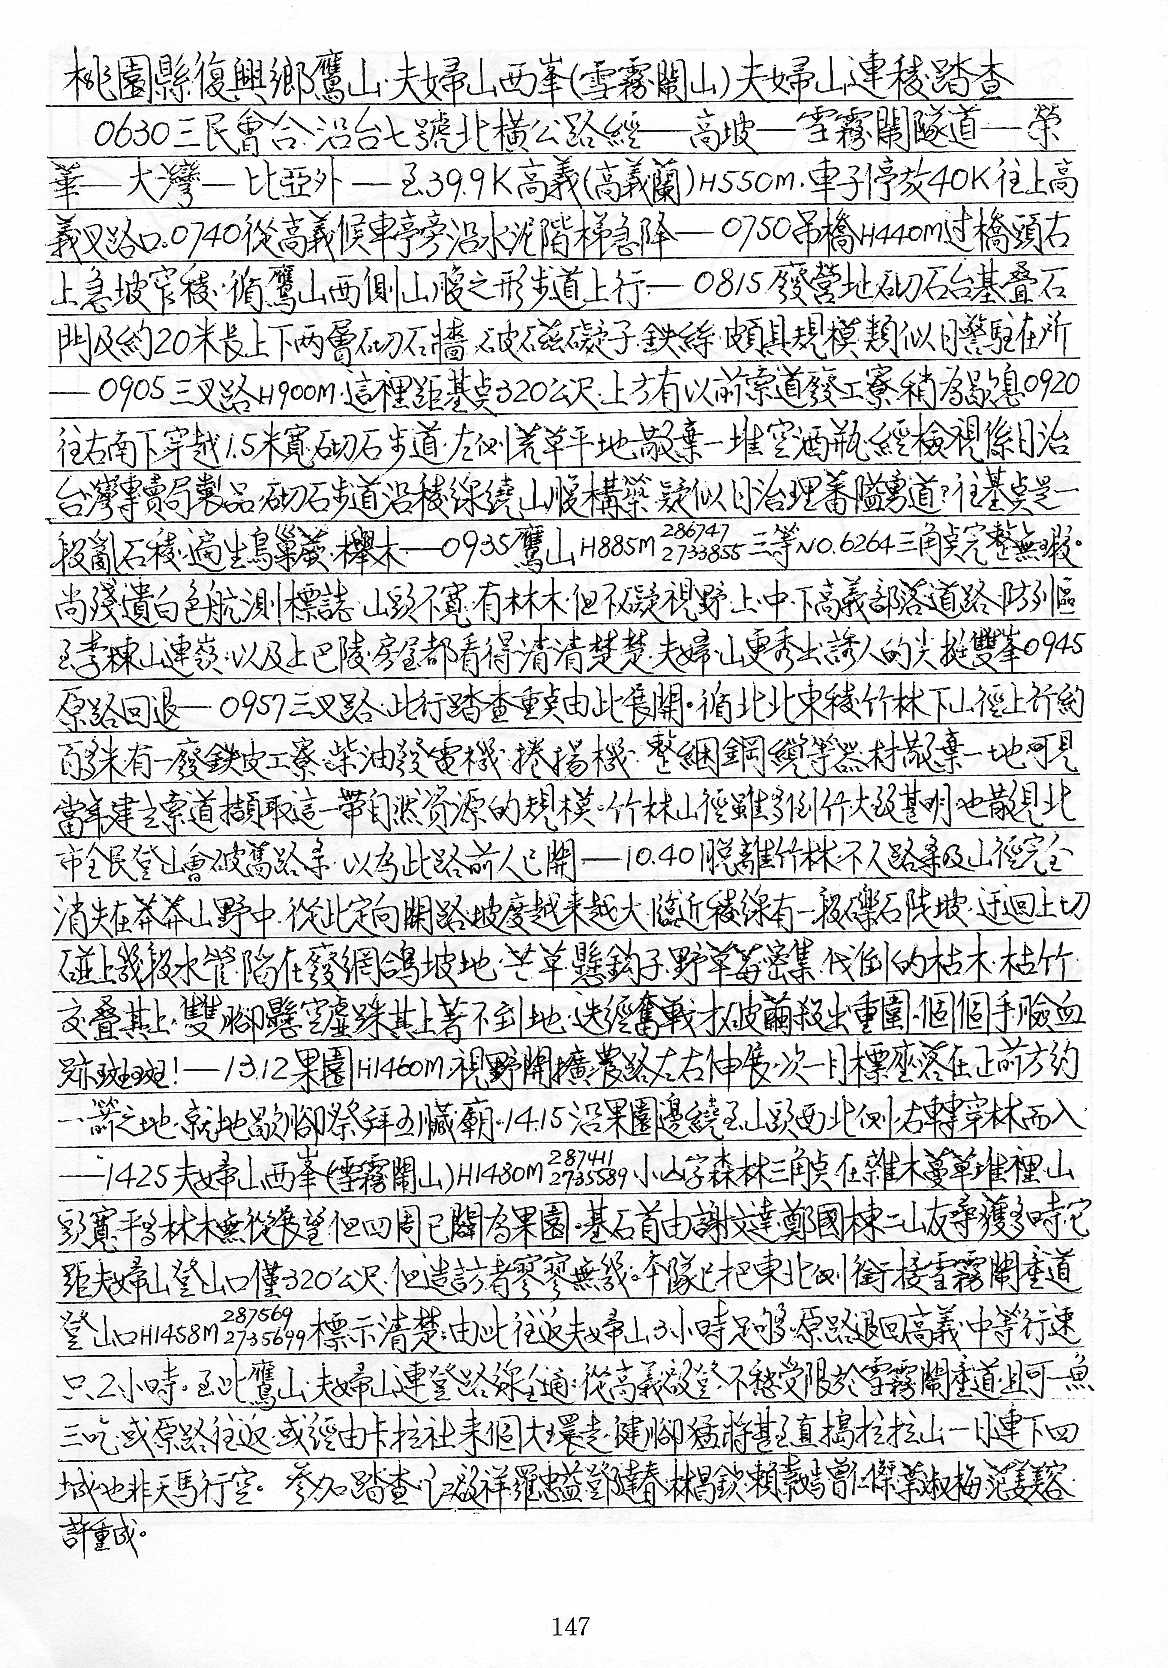 桃園縣復興鄉鷹山.夫婦山西峯(雪霧鬧山)夫婦山連稜踏查
0630三民會合.沿台七號北橫公路經—高坡—雪霧鬧隧道—榮
華—大灣—比亞外—至39.9K高義(高義蘭)H550M.車子停放40K往上高
義叉路口.0740從高義候車亭旁沿水泥階梯急降—0750吊橋H440M过橋頭右
上急坡窄稜.循鷹山西側山腹之形步道上行—0815廢營址.砌石台基叠石
門及約20米長上下两層砌石牆.破石磁碍子.鉄絲.頗具規模類似日警駐在所
—0905三叉路H900M.這裡距基点320公尺.上方有以前索道發工寮稍為歇息0920
往右南下穿越1.5米寬砌石步道.左側荒草平地散棄一堆空酒瓶.經檢視係日治
台灣專賣局製品.砌石步道沿稜線繞山腹構築.疑似日治理蕃隘勇道?往基点是一
段亂石稜.遍生鳥巢蕨.櫸木—0935鷹山H885M 286747 2733855三等NO.6264三角点完整無瑕。
尚殘遺白色航測標誌.山頭不寬.有林木.但不礙視野.上.中.下高義部落道路.防列區
至李棟山連嶺.以及上巴陵.房屋都看得清清楚楚.夫婦山更秀出誘人的尖挺雙峯0945
原路回退—0957三叉路.此行踏查重点由此展開。循北北東稜竹林下山徑上行約
百多米有一廢鉄皮工寮.柴油發電機.捲揚機.整綑鋼纜等器材散棄一地可見
當年建立索道擷取這一帶自然資源的規模。竹林山徑雖多倒竹大致甚明也散見北
市全民登山會破舊路条.以為此路前人已開—10.40脫離竹林.不久路条及山徑完全
消失在莽莽山野中.從此定向開路坡度越来越大.臨近稜線有一段礫石陡坡.迂迴上切
碰上幾段水管.陷在廢網鴿坡地.芒草.懸鈎子.野草莓密集.伐倒的枯木.枯竹.
交叠其上.雙腳懸空虛踩其上著不到地.迭經奮戰才破繭殺出重圍.個個手臉血
跡斑斑!—13.12果園H1460M.視野開擴農路左右伸展.次一目標座落在正前方約
一箭之地.就地歇腳祭拜五臟廟.14.15沿果園邊繞至山頭西北側.右轉穿林而入.
—1425夫婦山西峯(雪霧鬧山)H1480M 287441 2735589小山字森林三角点在雜木蔓草堆裡山
頭寬平多林木無從展望但四周已闢為果園。基石首由謝文達.鄭國棟二山友尋獲多時.它
距夫婦山登山口僅320公尺.但造訪者寥寥無幾。本隊已把東北側銜接雪霧鬧產道
登山口H1458M 287569 2735699標示清楚;由此往返夫婦山3小時足够.原路退回高義.中等行速
只2小時。至此鷹山.夫婦山連登路線全通;從高義啟登.不愁受限於雪霧鬧產道.且可一魚
三吃.或原路往返.或經由卡拉社来個大環走.健腳猛將甚至直搗拉拉山一日連下四
城也非天馬行空。參加踏查:江啟祥羅忠益鄧達春.林昌鎖.賴素嬌曾仁傑葉淑梅范姜容.
許重成。
147